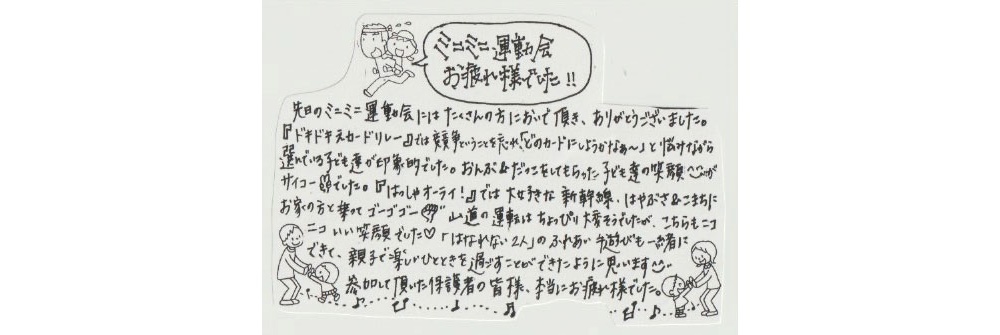 ミニミニ運動会
お疲れ様でした!!
先日のミニミニ運動会にはたくさんの方においで頂き、ありがとうございました。
『ドキドキえカードリレー』では競争ということを忘れ、「どのカードにしようかなぁ〜」と悩みながら
選んでいる子ども達が印象的でした。おんぶ&だっこをしてもらった子ども達の笑顔が
サイコーでした。『はっしゃオーライ!』では大好きな新幹線、はやぶさ&こまちに
お家の方と乗ってゴーゴゴー 山道の運転はちょっぴり大変そうでしたが、こちらもニコ
ニコいい笑顔でした♡「はなれない2人」のふれあい手遊びも一緒に
できて、親子で楽しいひとときを過ごすことができたように思います
参加して頂いた保護者の皆様、本当にお疲れ様でした。